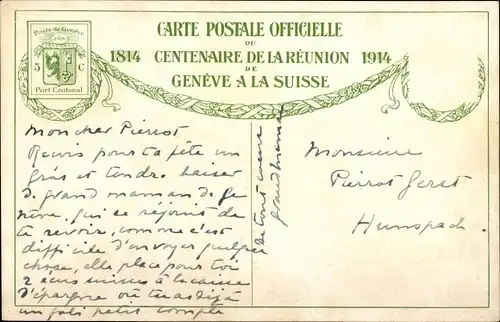 CARTE POSTALE OFFICIELLE
DU
1814 CENTENAIRE DE LA RÉUNION 1914
DE
GENÈVE A LA SUISSE
Poste de Genève
5 C
Port Cantonal
Mon cher Pierrot
Reçois pour ta fête un
gros et tendre baiser
de grand maman de Ge
nève, qui se réjouit de
te revoir, comme c'est
difficile d'envoyer quelque
chose, elle place pour toi
2 suisses à la caisse
d'épargne où tu as déjà
un joli petit compte
de tout cœur
grand maman
Monsieur
Pierrot Gerst
Hunspach.